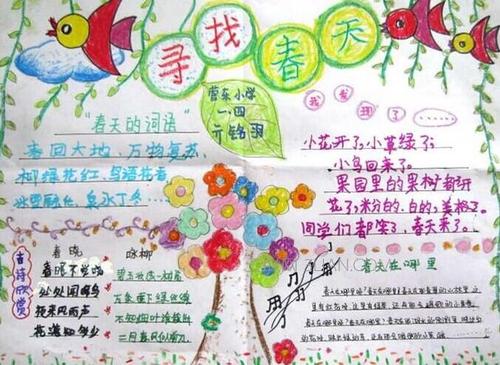 寻找春天
营东小学
一.四
亓铭羽
我发现了……
"春天的词语"
春回大地、万物复苏
柳绿花红、鸟语花香
冰雪融化、泉水丁冬……
小花开了,小草绿了,
小鸟回来了。
果园里的果树都开
花了,粉的、白的、美极了。
同学们都笑了,春天来了。
古诗欣赏
春晓
春眠不觉晓
处处闻啼鸟
夜来风雨声
花落知多少
咏柳
碧玉妆成一树高
万条垂下绿丝绦
不知细叶谁裁出
二月春风似剪刀
春天在哪里
春天在哪里呀?春天在哪里?